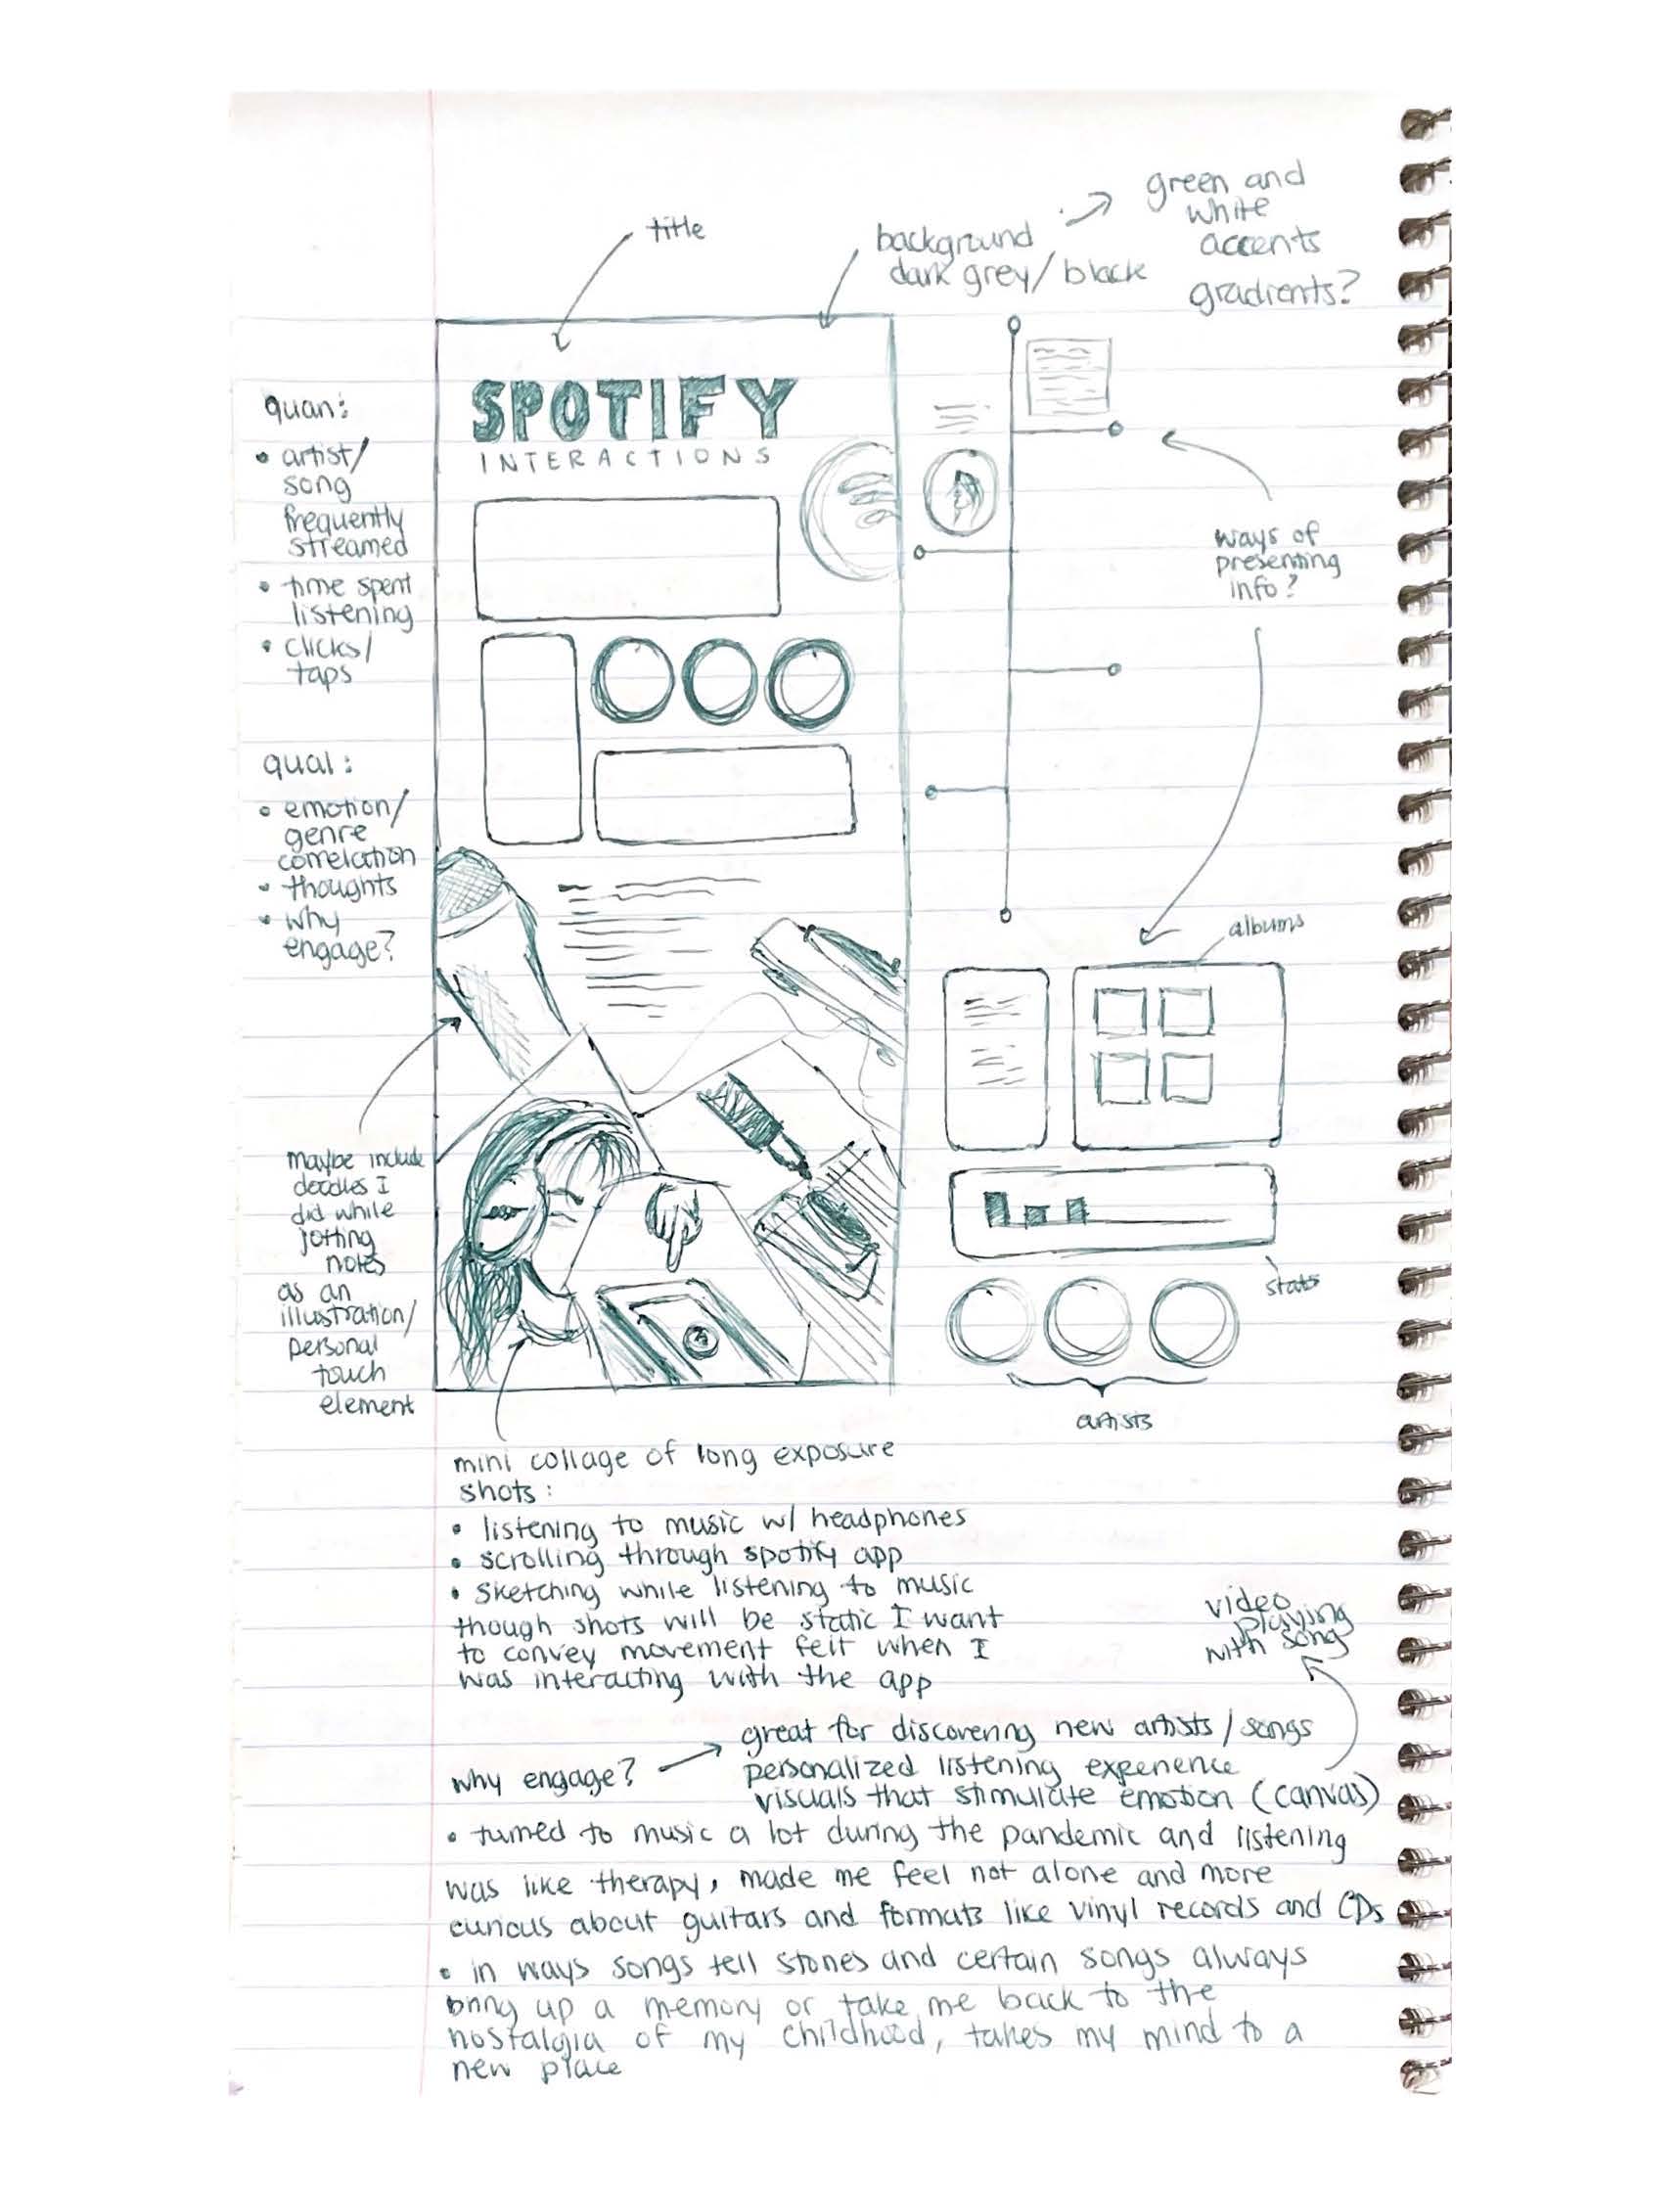 title
background
dark grey/black
green and
white
accents
gradients?
SPOTIFY
INTERACTIONS
quan:
• artist/
song
frequently
streamed
• time spent
listening
• clicks/
taps
qual:
• emotion/
genre
correlation
• thoughts
• why
engage?
ways of
presenting
info?
albums
stats
artists
maybe include
doodles I
did while
jotting
notes
as an
illustration/
personal
touch
element
mini collage of long exposure
shots:
• listening to music w/ headphones
• scrolling through spotify app
• sketching while listening to music
though shots will be static I want
to convey movement felt when I
was interacting with the app
video
playing
with song
why engage?
great for discovering new artists/songs
personalized listening experience
visuals that stimulate emotion (canvas)
• turned to music a lot during the pandemic and listening
was like therapy, made me feel not alone and more
curious about guitars and formats like vinyl records and CDs
• in ways songs tell stories and certain songs always
bring up a memory or take me back to the
nostalgia of my childhood, takes my mind to a
new place